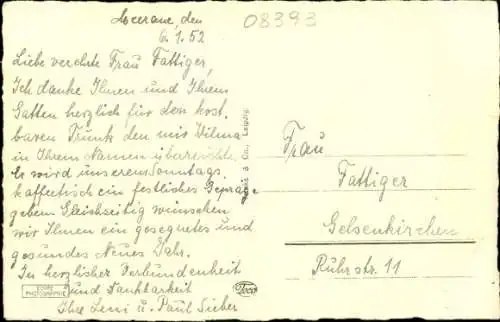 Meerane, den
6.1.52
08393
Liebe verehrte Frau Fattiger,
Ich danke Ihnen und Ihrem
Gatten herzlich für den kost-
baren Trunk den mir Wilma
in Ihrem Namen überreichte.
Er wird unserem Sonntags-
kaffeetisch ein festliches Gepräge
geben. Gleichzeitig wünschen
wir Ihnen ein gesegnetes und
gesundes Neues Jahr.
In herzlicher Verbundenheit
und Dankbarkeit
Ihre Leni u. Paul Sieber
& Co., Leipzig
ECHTE
PHOTOGRAPHIE
Frau
Fattiger
Gelsenkirchen
Ruhrstr. 11